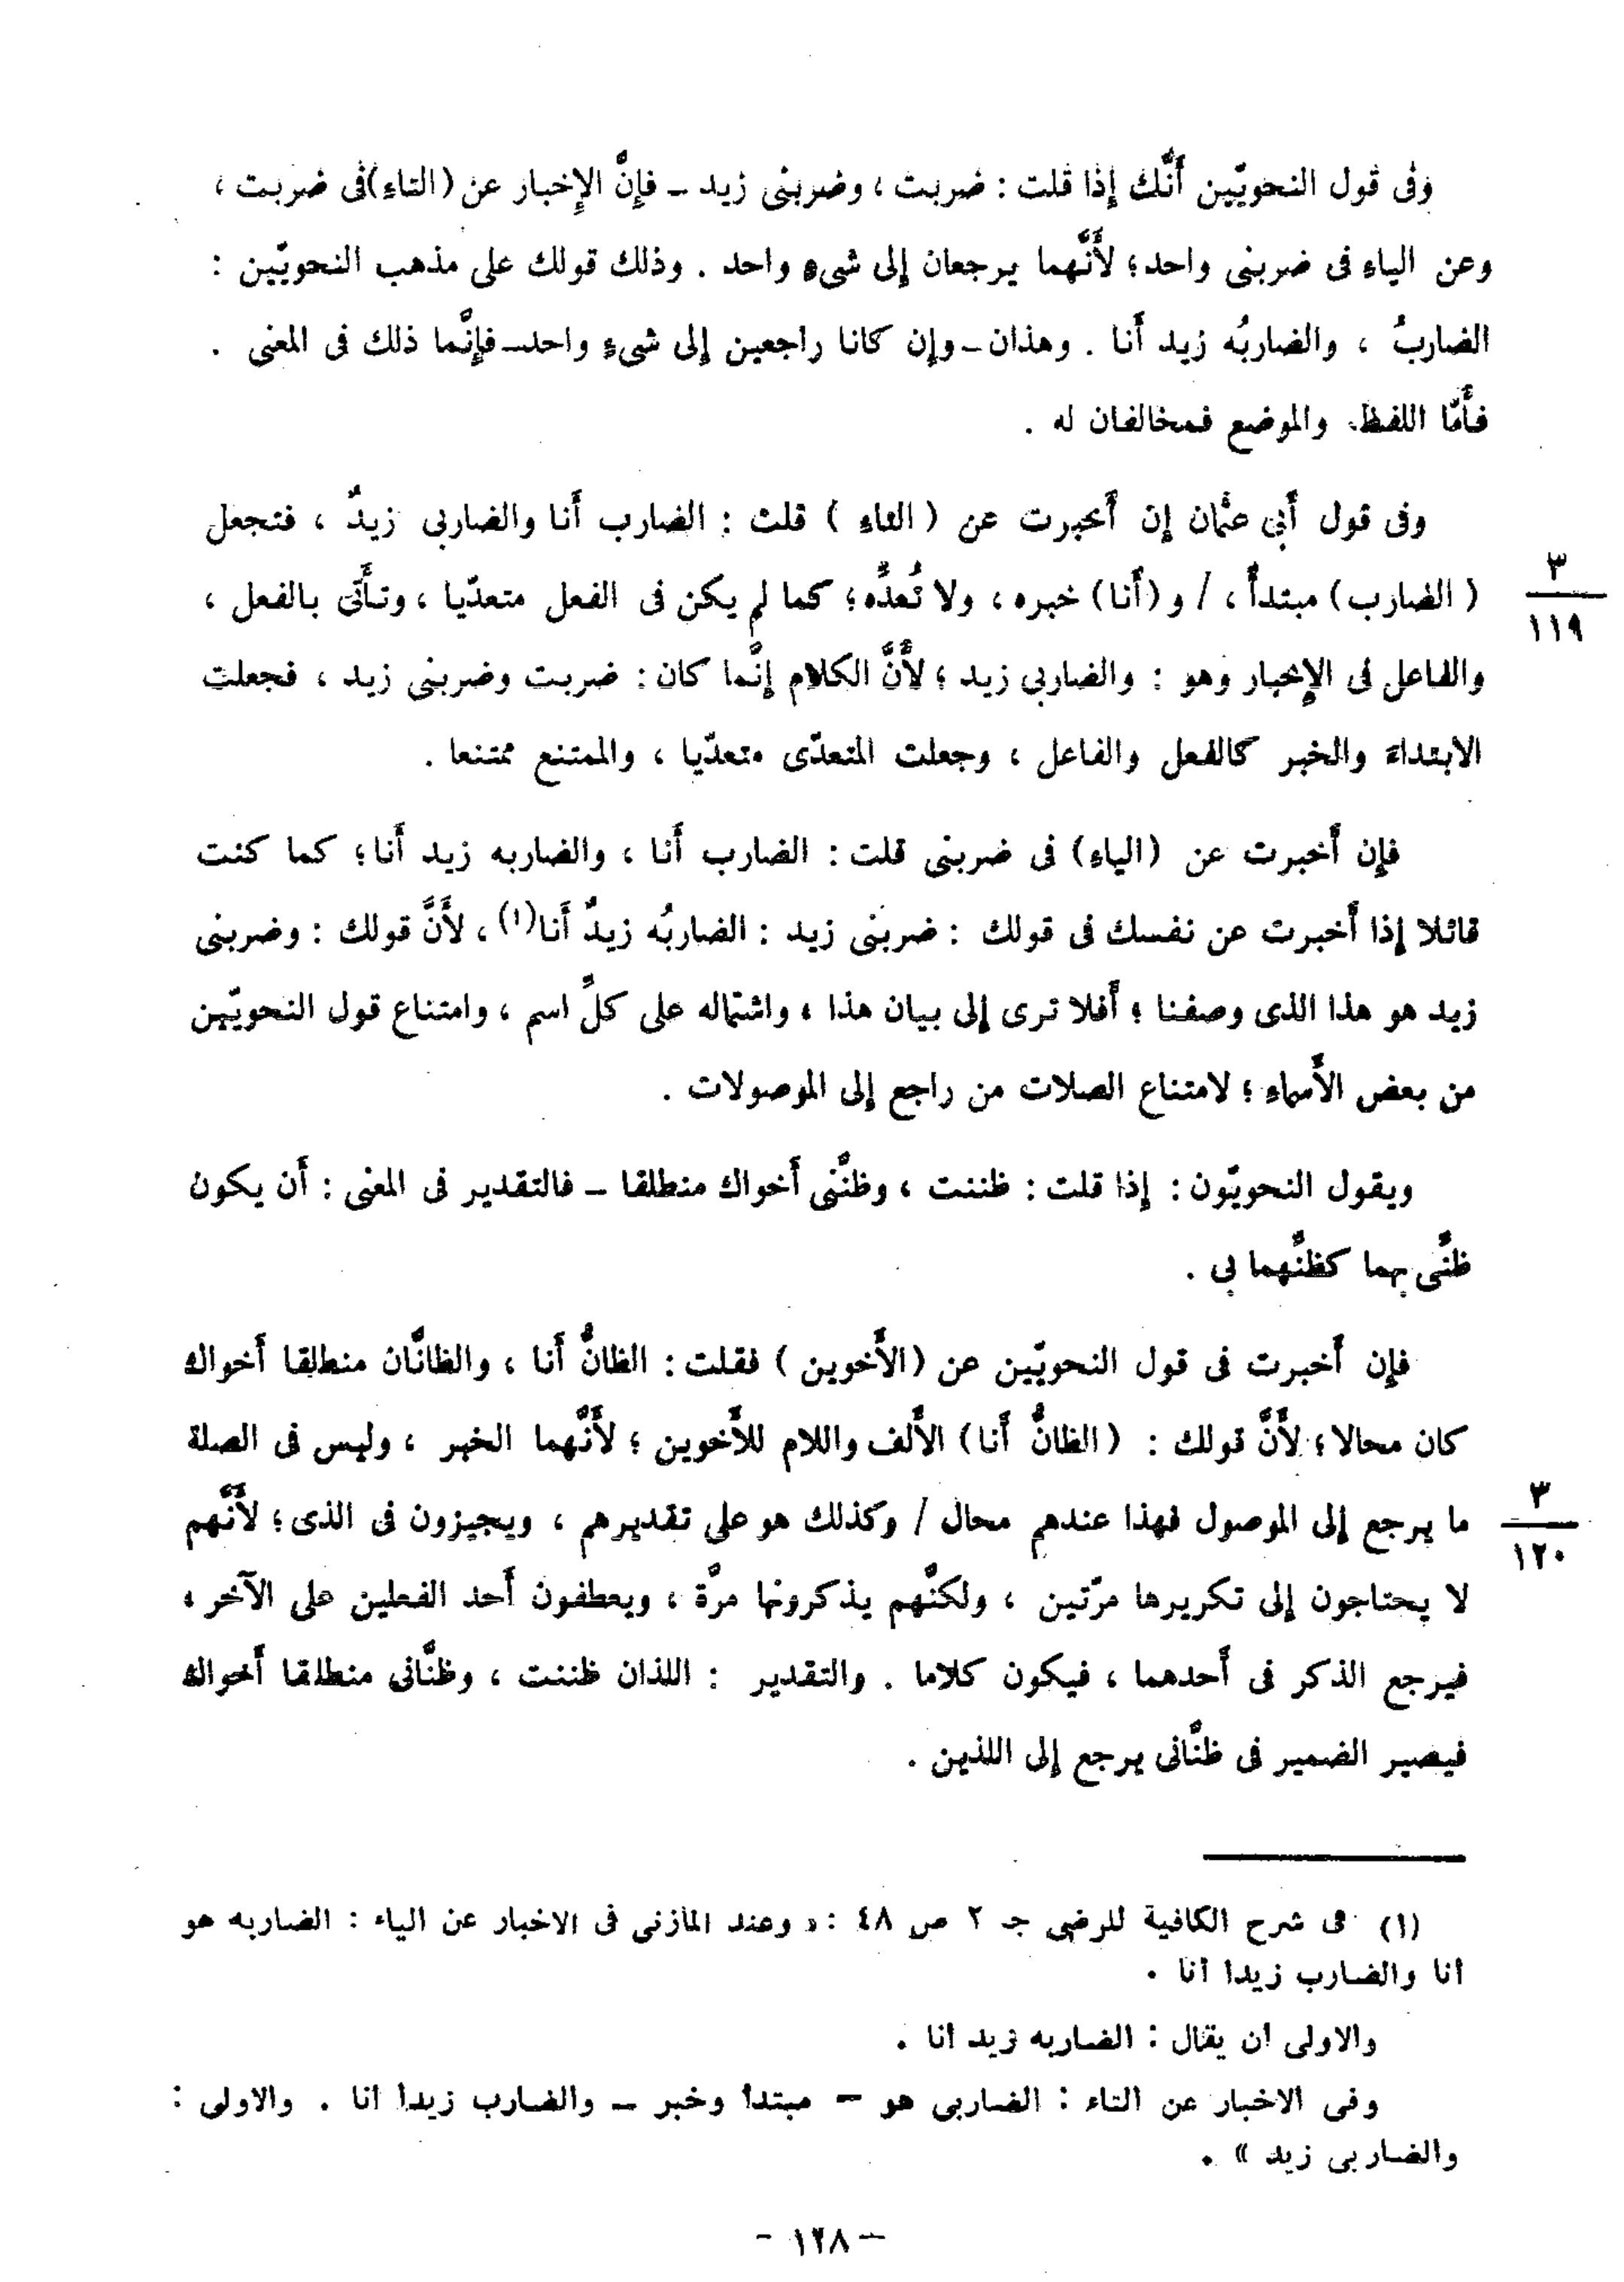 وفى قول النحويّين أَنَّك إذا قلت : ضربت ، وضربنى زيد – فإنَّ الإخبار عن (التاء) فى ضربت ،
وعن الياء فى ضربنى واحد ؛ لأَنَّهما يرجعان إلى شىءٍ واحد . وذلك قولك على مذهب النحويّين :
الضاربُ ، والضاربُه زيد أَنا . وهذان – وإن كانا راجعين إلى شىءٍ واحد – فإنَّما ذلك فى المعنى .
فأَمّا اللفظ والموضع فمخالفان له .
وفى قول أَبى عثمان إن أَخبرت عن ( التاء ) قلت : الضارب أَنا والضاربى زيدٌ ، فتجعل
( الضارب ) مبتدأً ، / و (أَنا) خبره ، ولا تُعدِّه ؛ كما لم يكن فى الفعل متعدّيا ، وتأْتى بالفعل ،
٣
١١٩
والفاعل فى الإخبار وهو : والضاربى زيد ؛ لأَنَّ الكلام إنَّما كان : ضربت وضربنى زيد ، فجعلت
الابتداءَ والخبر كالفعل والفاعل ، وجعلت المتعدّى متعدّيا ، والممتنع ممتنعا .
فإن أَخبرت عن (الياء) فى ضربنى قلت : الضارب أَنا ، والضاربه زيد أَنا ؛ كما كنت
قائلا إذا أَخبرت عن نفسك فى قولك : ضربنى زيد : الضاربُه زيدٌ أَنا(١) ، لأَنَّ قولك : وضربنى
زيد هو هذا الذى وصفنا ؛ أَفلا ترى إلى بيان هذا ، واشتماله على كلِّ اسم ، وامتناع قول النحويّين
من بعض الأَسماء ؛ لامتناع الصلات من راجع إلى الموصولات .
ويقول النحويّون : إذا قلت : ظننت ، وظنَّنى أَخواك منطلقا – فالتقدير فى المعنى : أَن يكون
ظنِّى بهما كظنِّهما بى .
فإن أَخبرت فى قول النحويّين عن (الأَخوين ) فقلت : الظانُّ أَنا ، والظانَّان منطلقا أَخواك
كان محالا ؛ لأَنَّ قولك : ( الظانُّ أَنا) الأَلف واللام للأَخوين ؛ لأَنَّهما الخبر ، وليس فى الصلة
ما يرجع إلى الموصول فهذا عندهم محال / وكذلك هو على تقديرهم ، ويجيزون فى الذى ؛ لأَنَّهم
٣
١٢٠
لا يحتاجون إلى تكريرها مرّتين ، ولكنَّهم يذكرونها مرّة ، ويعطفون أَحد الفعلين على الآخر ،
فيرجع الذكر فى أَحدهما ، فيكون كلاما . والتقدير : اللذان ظننت ، وظنَّانى منطلقا أَخواك
فيصير الضمير فى ظنَّانى يرجع إلى اللذين .
(١) فى شرح الكافية للرضى جـ ٢ ص ٤٨ : « وعند المازنى فى الاخبار عن الياء : الضاربه هو
انا والضارب زيدا انا .
والاولى ان يقال : الضاربه زيد انا .
وفى الاخبار عن التاء : الضاربى هو – مبتدا وخبر – والضارب زيدا انا . والاولى :
والضاربى زيد » .
– ١٢٨ –